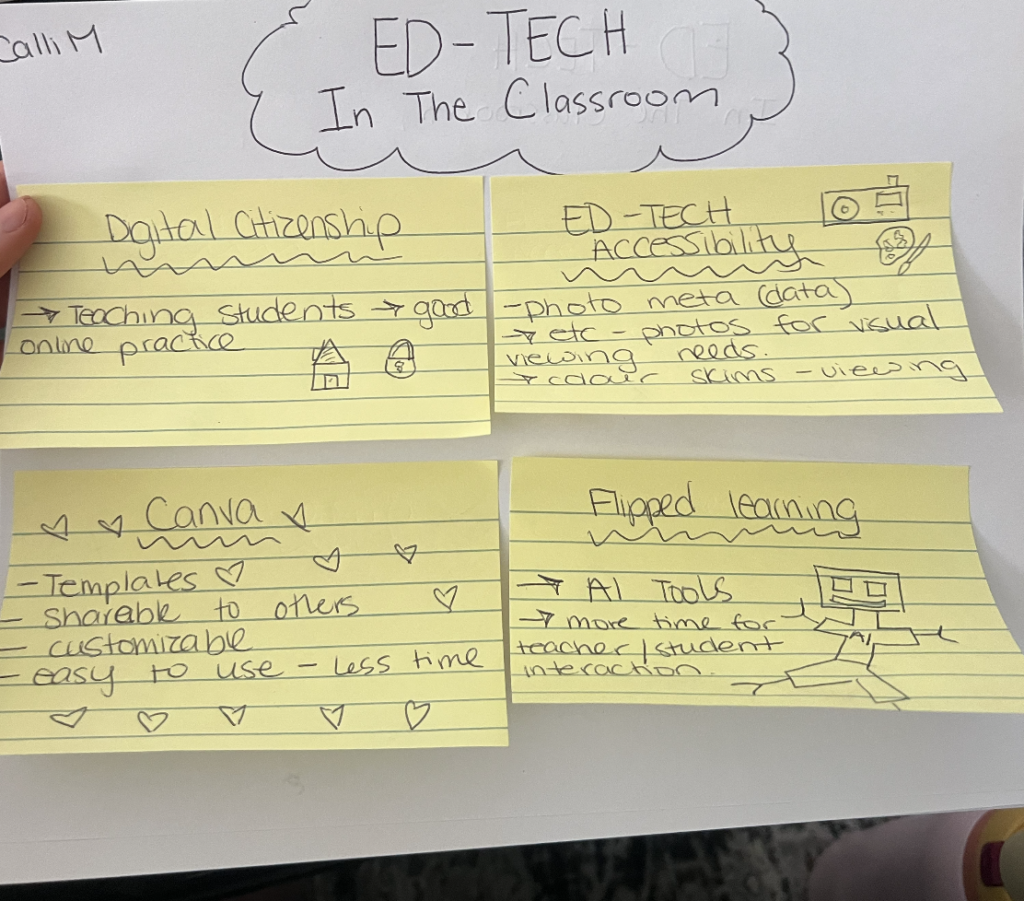 Calli M
ED-TECH
In The Classroom
Digital Citizenship
→ Teaching students → good
online practice
ED-TECH
ACCESSIBILITY
-photo meta (data)
→ etc - photos for visual
viewing needs.
→ colour skims - viewing
Canva
- Templates
- sharable to others
- customizable
- easy to use - less time
Flipped learning
→ AI TOOLS
→ more time for
teacher/student
interaction.
AI